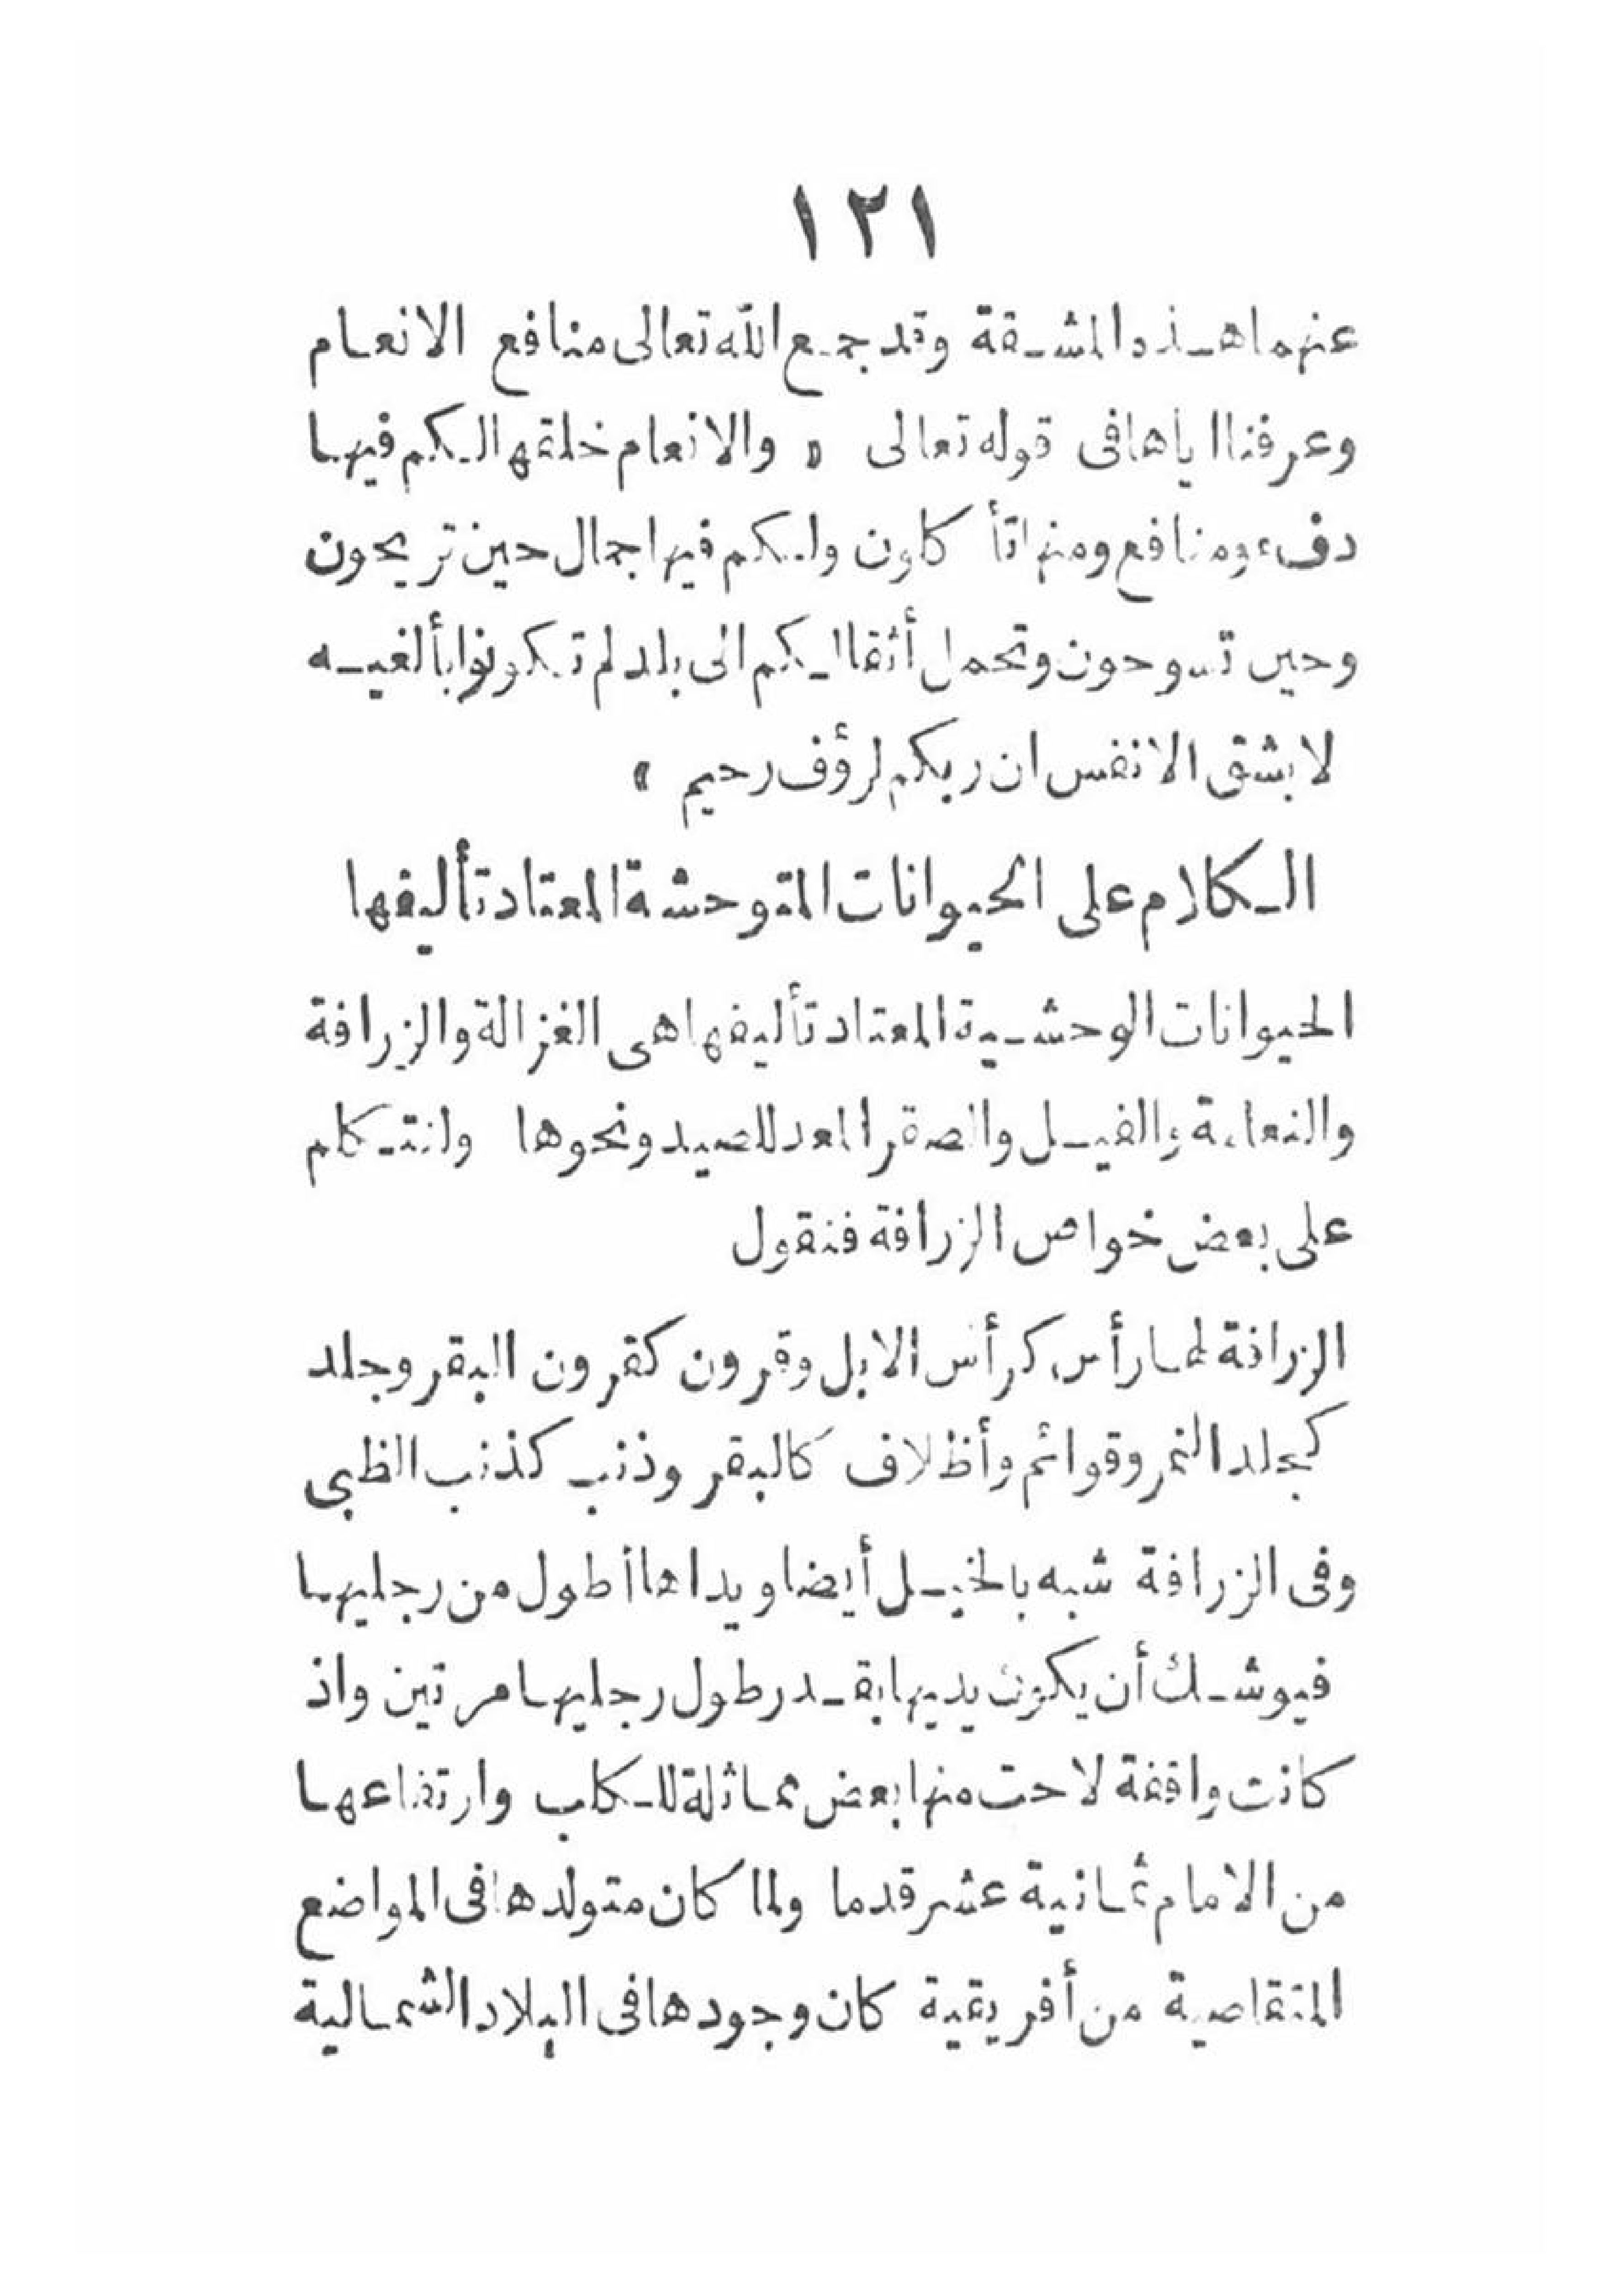 ١٢١
عنهما هذه المشقة وقد جمع الله تعالى منافع الانعام
وعرفنا اياها فى قوله تعالى « والانعام خلقها لكم فيها
دفء ومنافع ومنها تأكلون ولكم فيها جمال حين تريحون
وحين تسرحون وتحمل أثقالكم الى بلد لم تكونوا بالغيه
لا بشق الانفس ان ربكم لرؤف رحيم »
الكلام على الحيوانات المتوحشة المعتاد تأليفها
الحيوانات الوحشية المعتاد تأليفها هى الغزالة والزرافة
والنعامة والفيل والصقر المعد للصيد ونحوها ولنتكلم
على بعض خواص الزرافة فنقول
الزرافة لها رأس كرأس الابل وقرون كقرون البقر وجلد
كجلد النمر وقوائم وأظلاف كالبقر وذنب كذنب الظبى
وفى الزرافة شبه بالخيل أيضا ويداها أطول من رجليها
فيوشك أن يكون يديها بقدر طول رجليها مرتين واذ
كانت واقفة لاحت منها بعض مماثلة للكلب وارتفاعها
من الامام ثمانية عشر قدما ولما كان متولدها فى المواضع
المتقاصية من أفريقية كان وجودها فى البلاد الشمالية